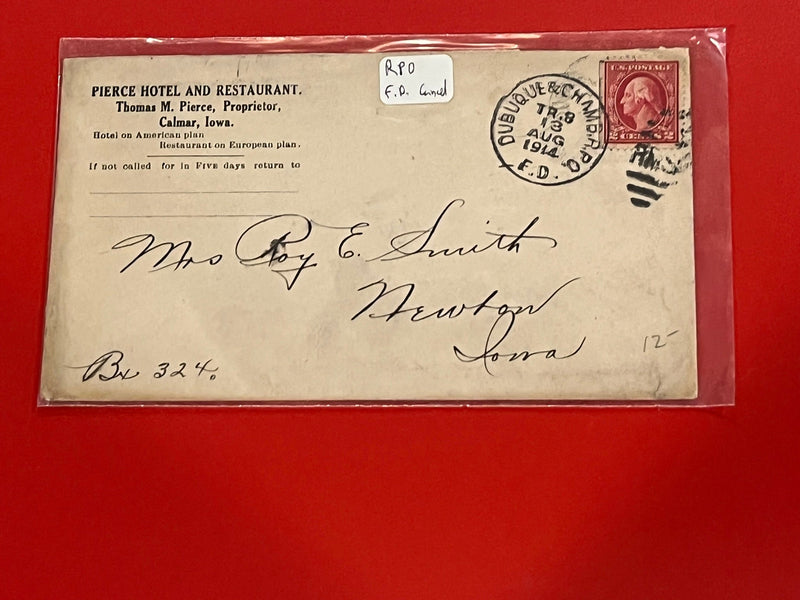 PIERCE HOTEL AND RESTAURANT.
Thomas M. Pierce, Proprietor,
Calmar, Iowa.
Hotel on American plan
Restaurant on European plan.
If not called for in FIVE days return to
RPO
F.D. Cancel
DUBUQUE & CHAMB. R.P.O.
TR. 8
13
AUG
1914
F.D.
U.S. POSTAGE
2 CENTS 2
Mrs Roy E. Smith
Newton
Iowa
Bx 324.
12-